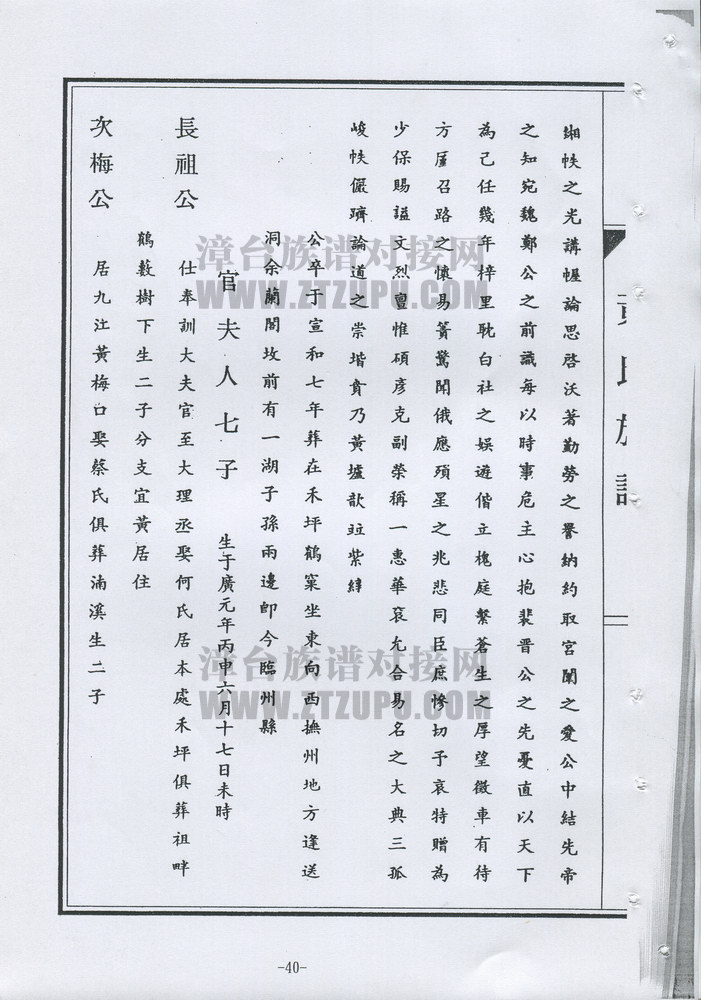 黃氏族譜
緗帙之光講幄論思啓沃著勤勞之譽納約取宮闈之愛公中結先帝
之知宛魏鄭公之前識每以時事危主心抱裴晉公之先憂直以天下
為己任幾年梓里耽白社之娛遊偕立槐庭繫蒼生之厚望徵車有待
方屆召路之懷易簀驚聞俄應殞星之兆悲同臣庶慘切予哀特贈為
少保賜謚文烈亶惟碩彥克副榮稱一惠華袞允合易名之大典三孤
峻帙儼躋論道之崇堦賁乃黃壚歆竝紫綍
公卒于宣和七年葬在禾坪鶴窠坐東向西撫州地方逢送
洞余蘭閣坟前有一湖子孫兩邊卽今臨州縣
官夫人七子 生于廣元年丙申六月十七日未時
長祖公 仕奉訓大夫官至大理丞娶何氏居本處禾坪俱葬祖畔
鶴藪樹下生二子分支宜黃居住
次梅公 居九江黃梅口娶蔡氏俱葬湳溪生二子
-40-
漳台族谱对接网
WWW.ZTZUPU.COM
漳台族谱对接网
WWW.ZTZUPU.COM